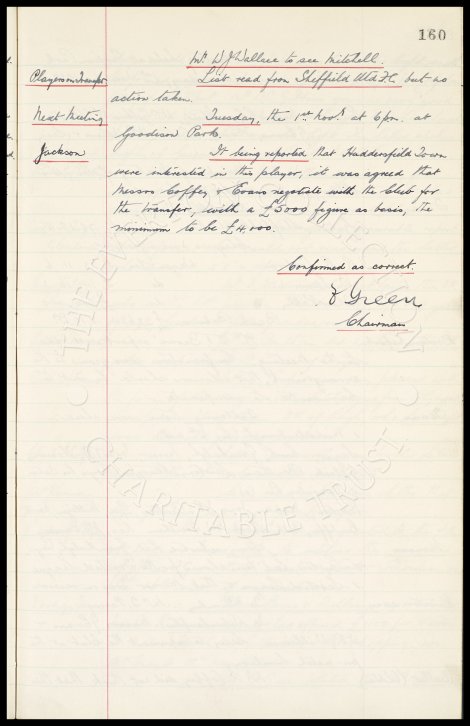 160
Mr. W.J. Wallace to see Mitchell.
Players on Transfer List read from Sheffield Utd F.C. but no
action taken.
Next Meeting Tuesday, the 1st Novr at 6pm. at
Goodison Park.
Jackson It being reported that Huddersfield Town
were interested in this player, it was agreed that
Messrs Coffey & Evans negotiate with the Club for
the transfer, with a £5000 figure as basis, the
minimum to be £4,000.
Confirmed as correct.
Green
Chairman
THE EVERTON COLLECTION
CHARITABLE TRUST